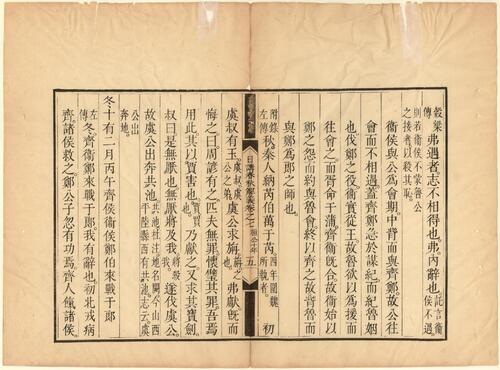 穀梁傳弗遇者志不相得也弗內辭也託言衛侯不遇
則若衛侯不蒙魯公之接者以殺其恥
衛侯與公為會期中背而與齊鄭故公往
會而不相遇蓋齊鄭急於謀紀而紀魯姻
也伐鄭之役衛實從王故魯欲以為援而
往會之而胥命于蒲齊衛旣合故衛始以
鄭之怨而約與魯會終以齊之故背魯而
與鄭為郎之師也
附錄左傳秋秦人納芮伯萬于芮四年圍魏所執者初
日講春秋解義卷之七 桓公十年 五
虞叔有玉虞叔虞公之弟虞公求旃旃之也弗獻旣而
悔之曰周諺有之匹夫無罪懷璧其罪吾焉
用此其以賈害也賈買也乃獻之又求其寶劍
叔曰是無厭也無厭將及我將殺我遂伐虞公
故虞公出奔共池共池地名闕今山西平陸縣西有共池志云虞
公出奔地
冬十有二月丙午齊侯衛侯鄭伯來戰于郎
左傳冬齊衛鄭來戰于郎我有辭也初北戎病
齊諸侯救之鄭公子忽有功焉齊人餼諸侯